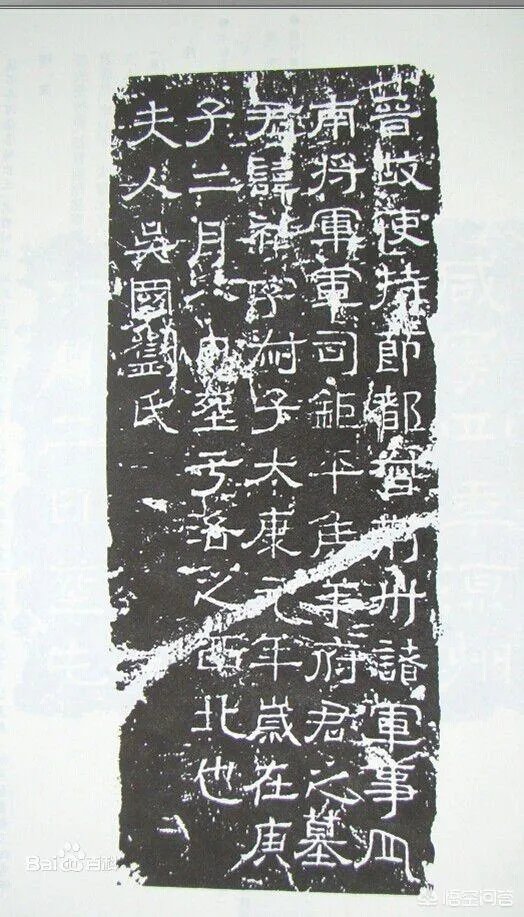 晉故使持節都督荊州諸軍事平
南将軍軍司鉅平侯羊府君之墓
君諱祜字叔子太康元年歲在庚
子二月塟于洛之西北也
夫人吳國劉氏
Baidu百科
悟空问答